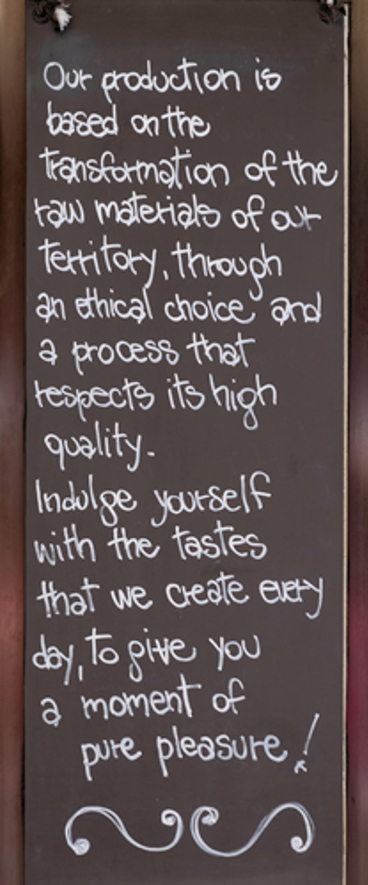 Our production is
based on the
transformation of the
raw materials of our
territory, through
an ethical choice and
a process that
respects its high
quality.
Indulge yourself
with the tastes
that we create every
day, to give you
a moment of
pure pleasure!